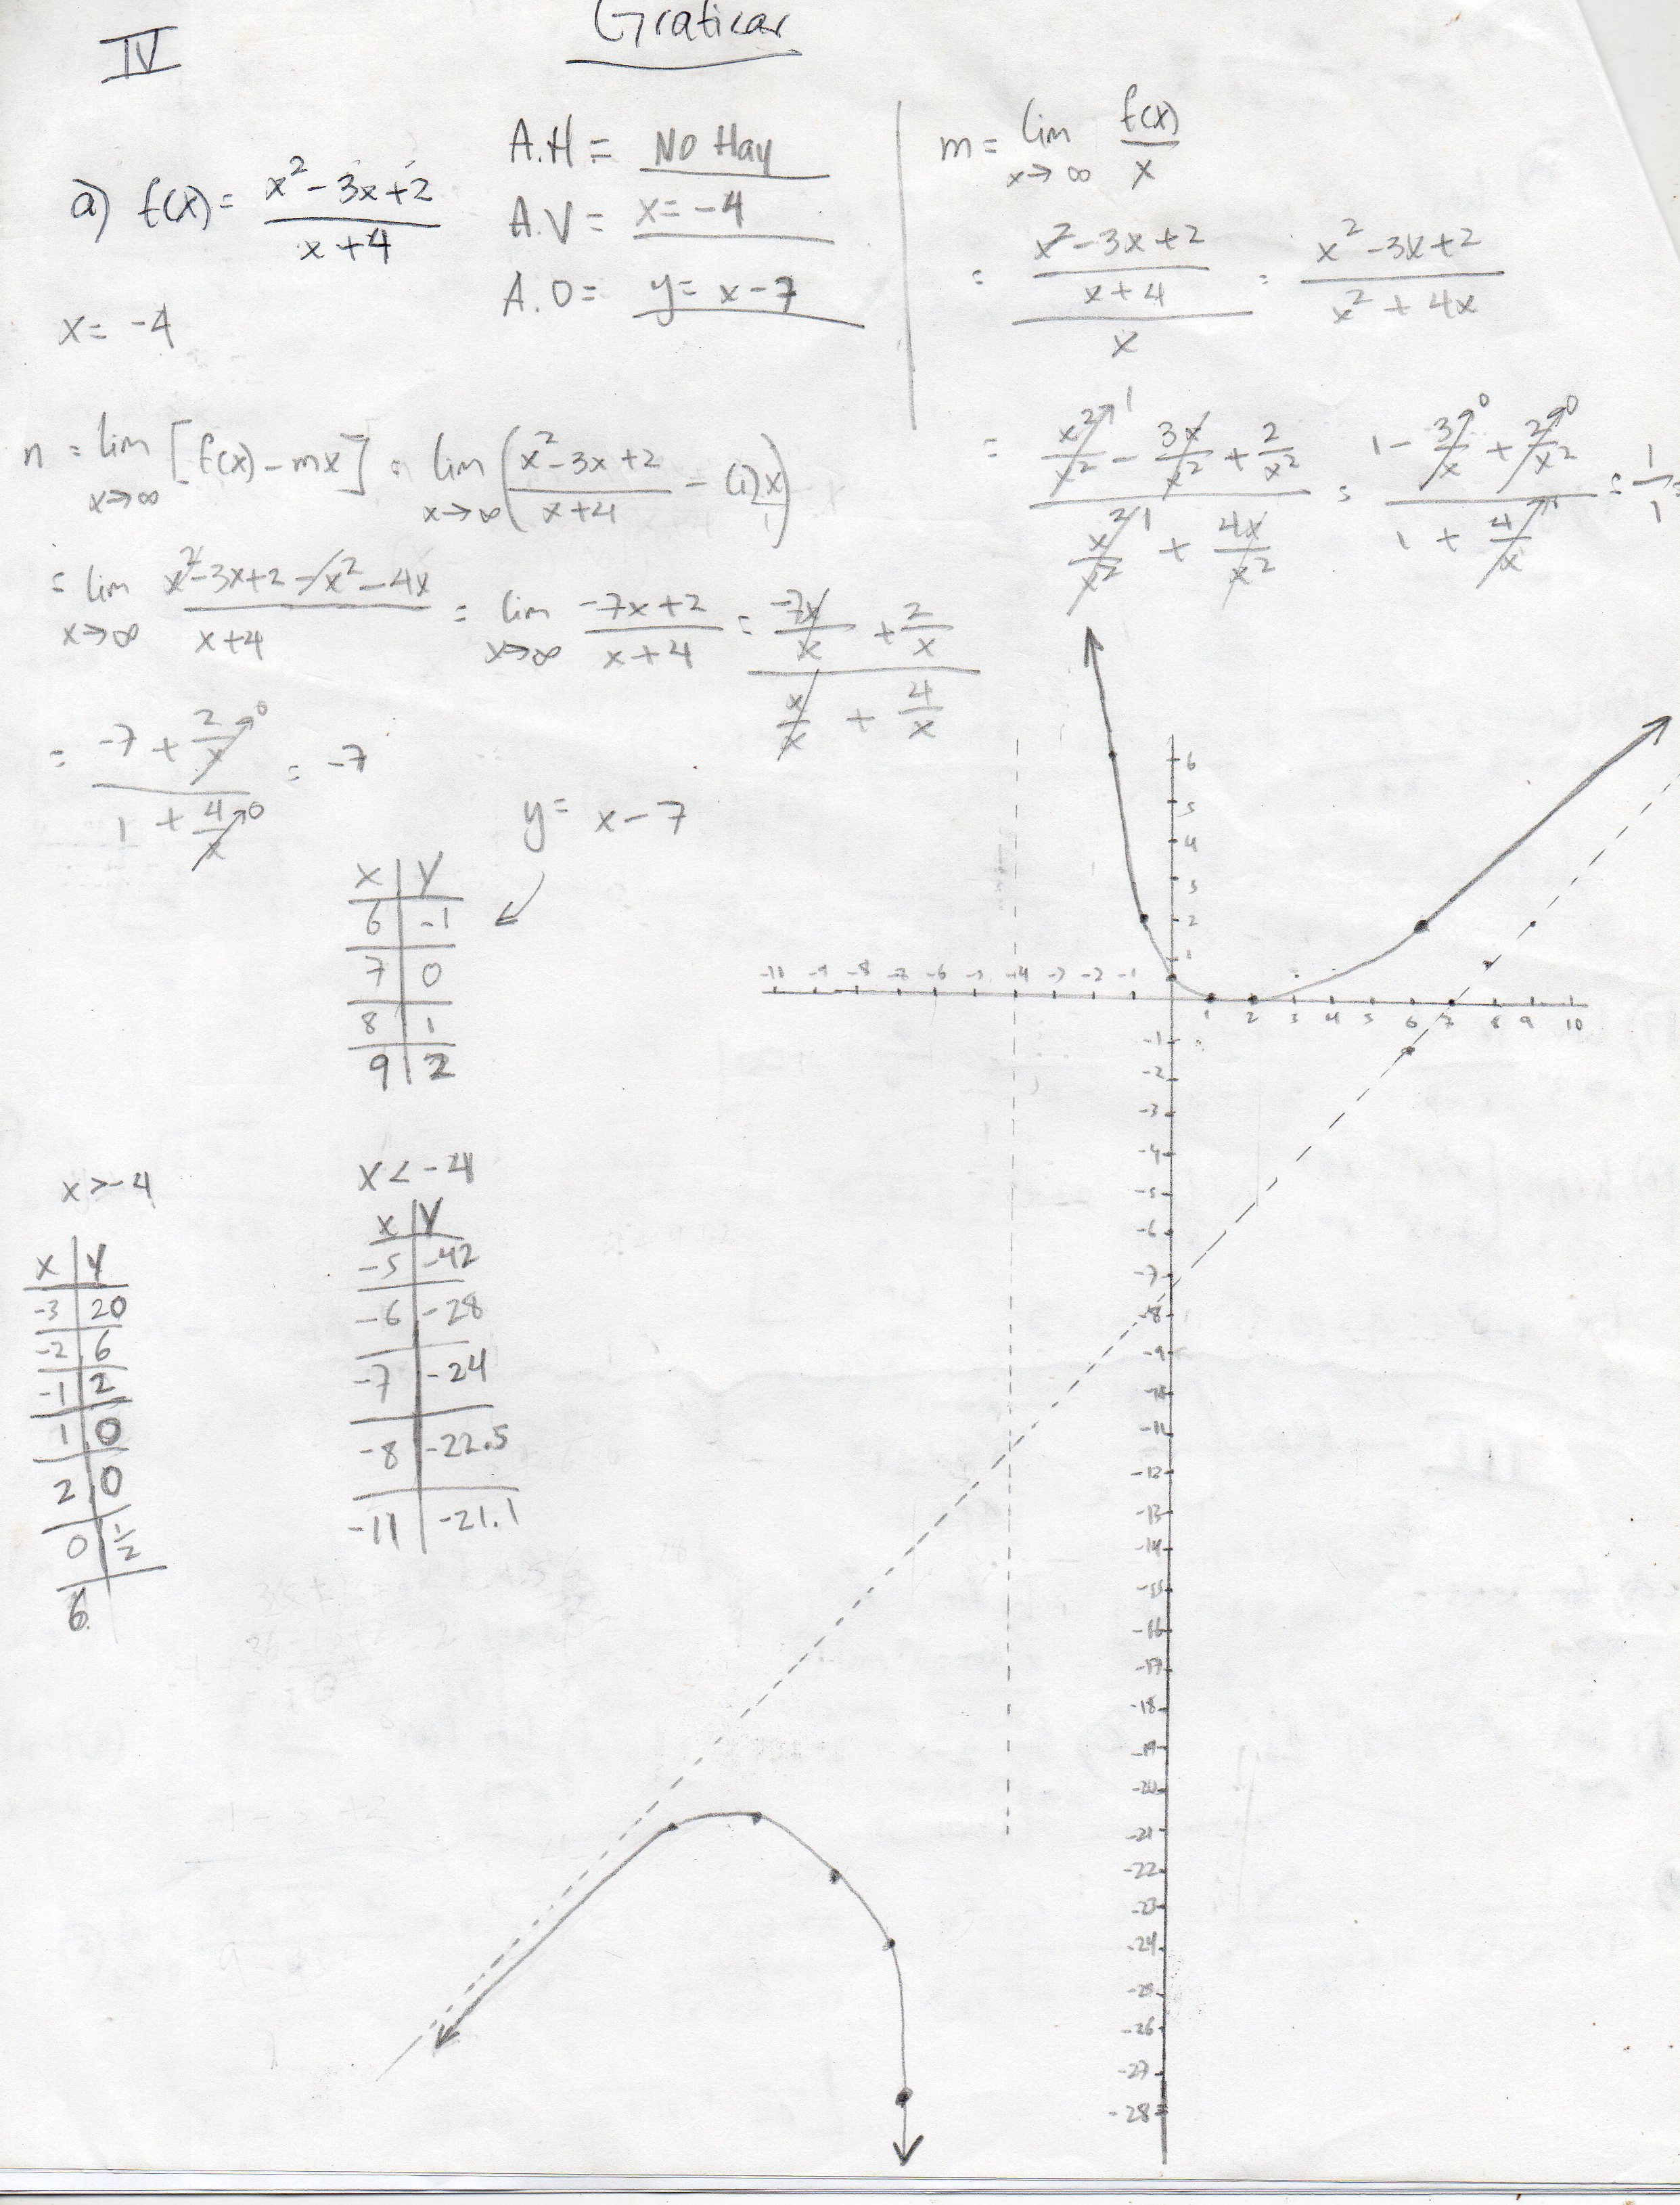 IV
Graficar
a) f(x) = (x² - 3x + 2)/(x + 4)
x = -4
A.H = No Hay
A.V = x = -4
A.O = y = x - 7
m = lim x→∞ f(x)/x
= ((x² - 3x + 2)/(x + 4))/x = (x² - 3x + 2)/(x² + 4x)
= (x²/x² - 3x/x² + 2/x²)/(x²/x² + 4x/x²) = (1 - 3/x + 2/x²)/(1 + 4/x) = 1/1 =
n = lim x→∞ [f(x) - mx] = lim x→∞ ((x² - 3x + 2)/(x + 4) - (1)x/1)
= lim x→∞ (x² - 3x + 2 - x² - 4x)/(x + 4) = lim x→∞ (-7x + 2)/(x + 4) = (-7x/x + 2/x)/(x/x + 4/x)
= (-7 + 2/x)/(1 + 4/x) = -7
y = x - 7
x | y
6 | -1
7 | 0
8 | 1
9 | 2
x > -4
x | y
-3 | 20
-2 | 6
-1 | 2
1 | 0
2 | 0
0 | 1/2
6
x < -4
x | y
-5 | -42
-6 | -28
-7 | -24
-8 | -22.5
-11 | -21.1
6
5
4
3
2
1
-11 -9 -8 -7 -6 -5 -4 -3 -2 -1
1 2 3 4 5 6 7 8 9 10
-1
-2
-3
-4
-5
-6
-7
-8
-9
-10
-11
-12
-13
-14
-15
-16
-17
-18
-19
-20
-21
-22
-23
-24
-25
-26
-27
-28